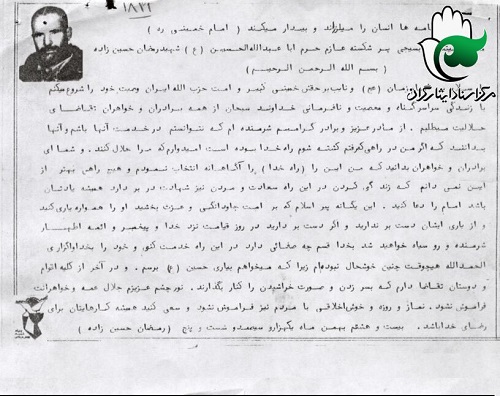 ۱۸۲۱
نامه ها انسان را میلرزاند و بیدار میکنند ( امام خمینی ره )
بسیجی پر شکسته عازم حرم ابا عبداللهالحسین (ع) شهید رمضان حسین زاده
( بسم الله الرحمن الرحیم )
زمان (عج) و نایب بر حقش خمینی کبیر و امت حزب الله ایران وصیت خود را شروع میکنم
با زندگی سراسر گناه و معصیت و نافرمانی خداوند سبحان از همه برادران و خواهران تقاضای
حلالیت میطلبم . از مادر عزیز و برادر گرامیم شرمنده ام که نتوانستم در خدمت آنها باشم و آنها
بدانند که اگر من در راهی که رفتم کشته شوم راه خدا بوده است امیدوارم که مرا حلال کنند . و شما ای
برادران و خواهران بدانید که من این را (راه خدا ) را آگاهانه انتخاب نمودم و هیچ راهی بهتر از
این نمی دانم که زندگی کردن در این راه سعادت و مردن نیز شهادت در بر دارد همیشه یادتان
باشد امام را دعا کنید . این یگانه پیر اسلام که بر امت جاودانگی و عزت بخشید او را همواره یاری کنید
و از یاری ایشان دست بر ندارید و اگر دست بر دارید در روز قیامت نزد خدا و پیغمبر و ائمه اطهار
شرمنده و رو سیاه خواهید شد بخدا قسم چه صفائی دارد در این راه خدمت کنی و خود را بخدا واگزاری
الحمدالله هیچوقت چنین خوشحال نبوده ام زیرا که میخواهم بیاری حسین (ع) برسم . و در آخر از کلیه اقوام
و دوستان تقاضا دارم که بسر زدن و صورت خراشیدن را کنار بگذارند . نور چشم عزیزم جلال عمه و خواهرانت
فراموش نشود . نماز و روزه و خوش اخلاقی با مردم نیز فراموش نشود و سعی کنید همیشه کارهایتان برای
رضای خدا باشد . بیست و هشتم بهمن ماه یکهزارو سیصدو شصت و پنج ( رمضان حسین زاده )
مرکز اسناد ایثارگران